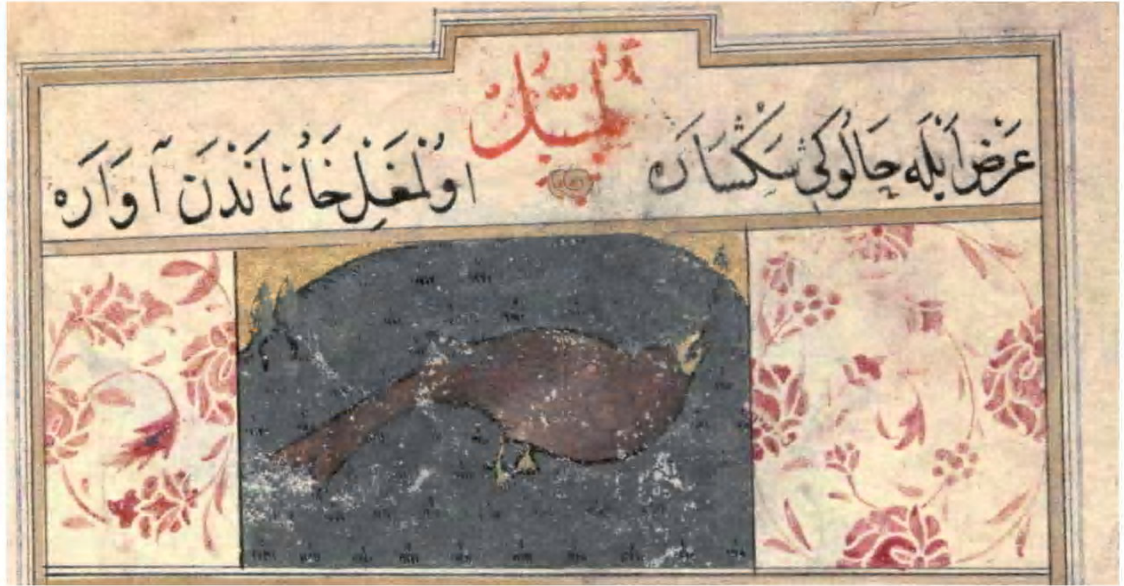 بلبل
عَرْض اَيْلَه چَالُوكِى سَكْسَارَه اوُلْمَغِلْ خَانُمَانْدَنْ آوَارَه